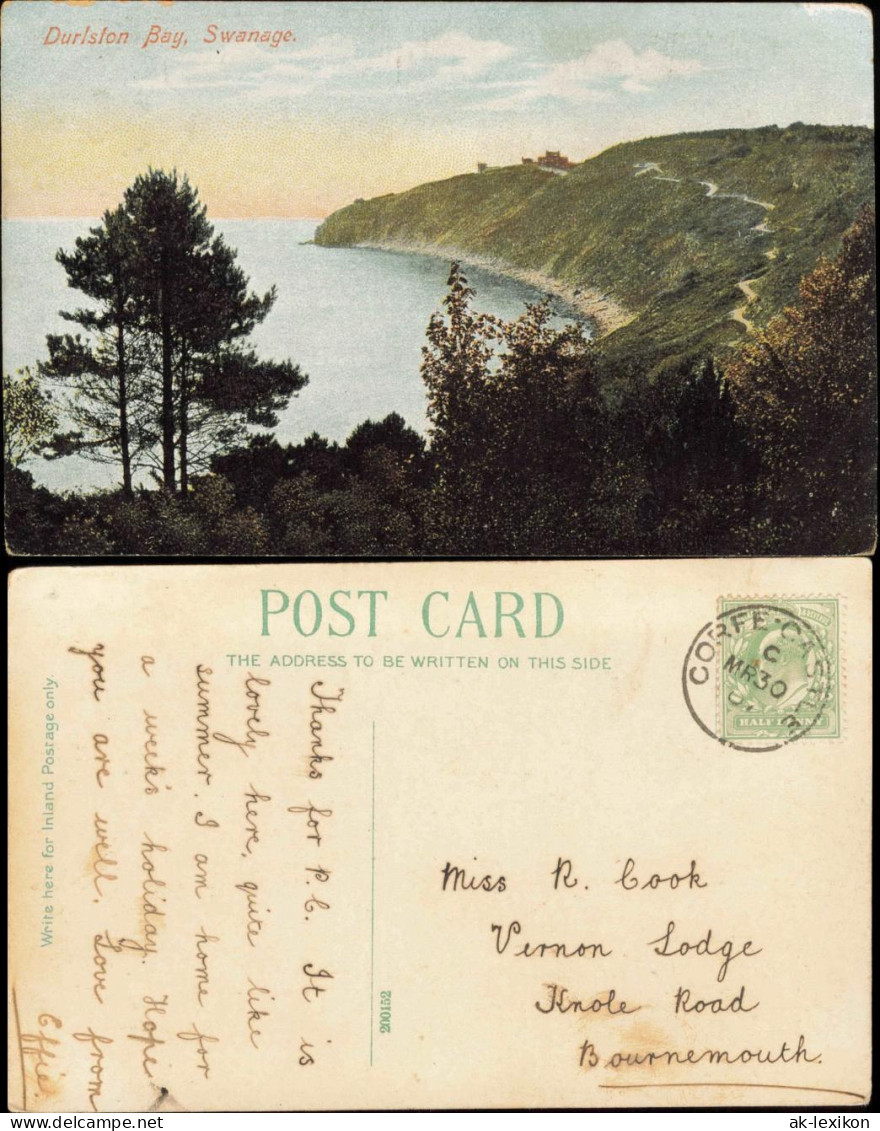 Durlston Bay, Swanage.
POST CARD
THE ADDRESS TO BE WRITTEN ON THIS SIDE
Write here for Inland Postage only.
Thanks for P.C. It is
lovely here, quite like
summer. I am home for
a week's holiday. Hope
you are well. Love from
Effie.
200152
CORFE·CASTLE
C
MR30
07
HALF PENNY
Miss R. Cook
Vernon Lodge
Knole Road
Bournemouth.
ak-lexikon